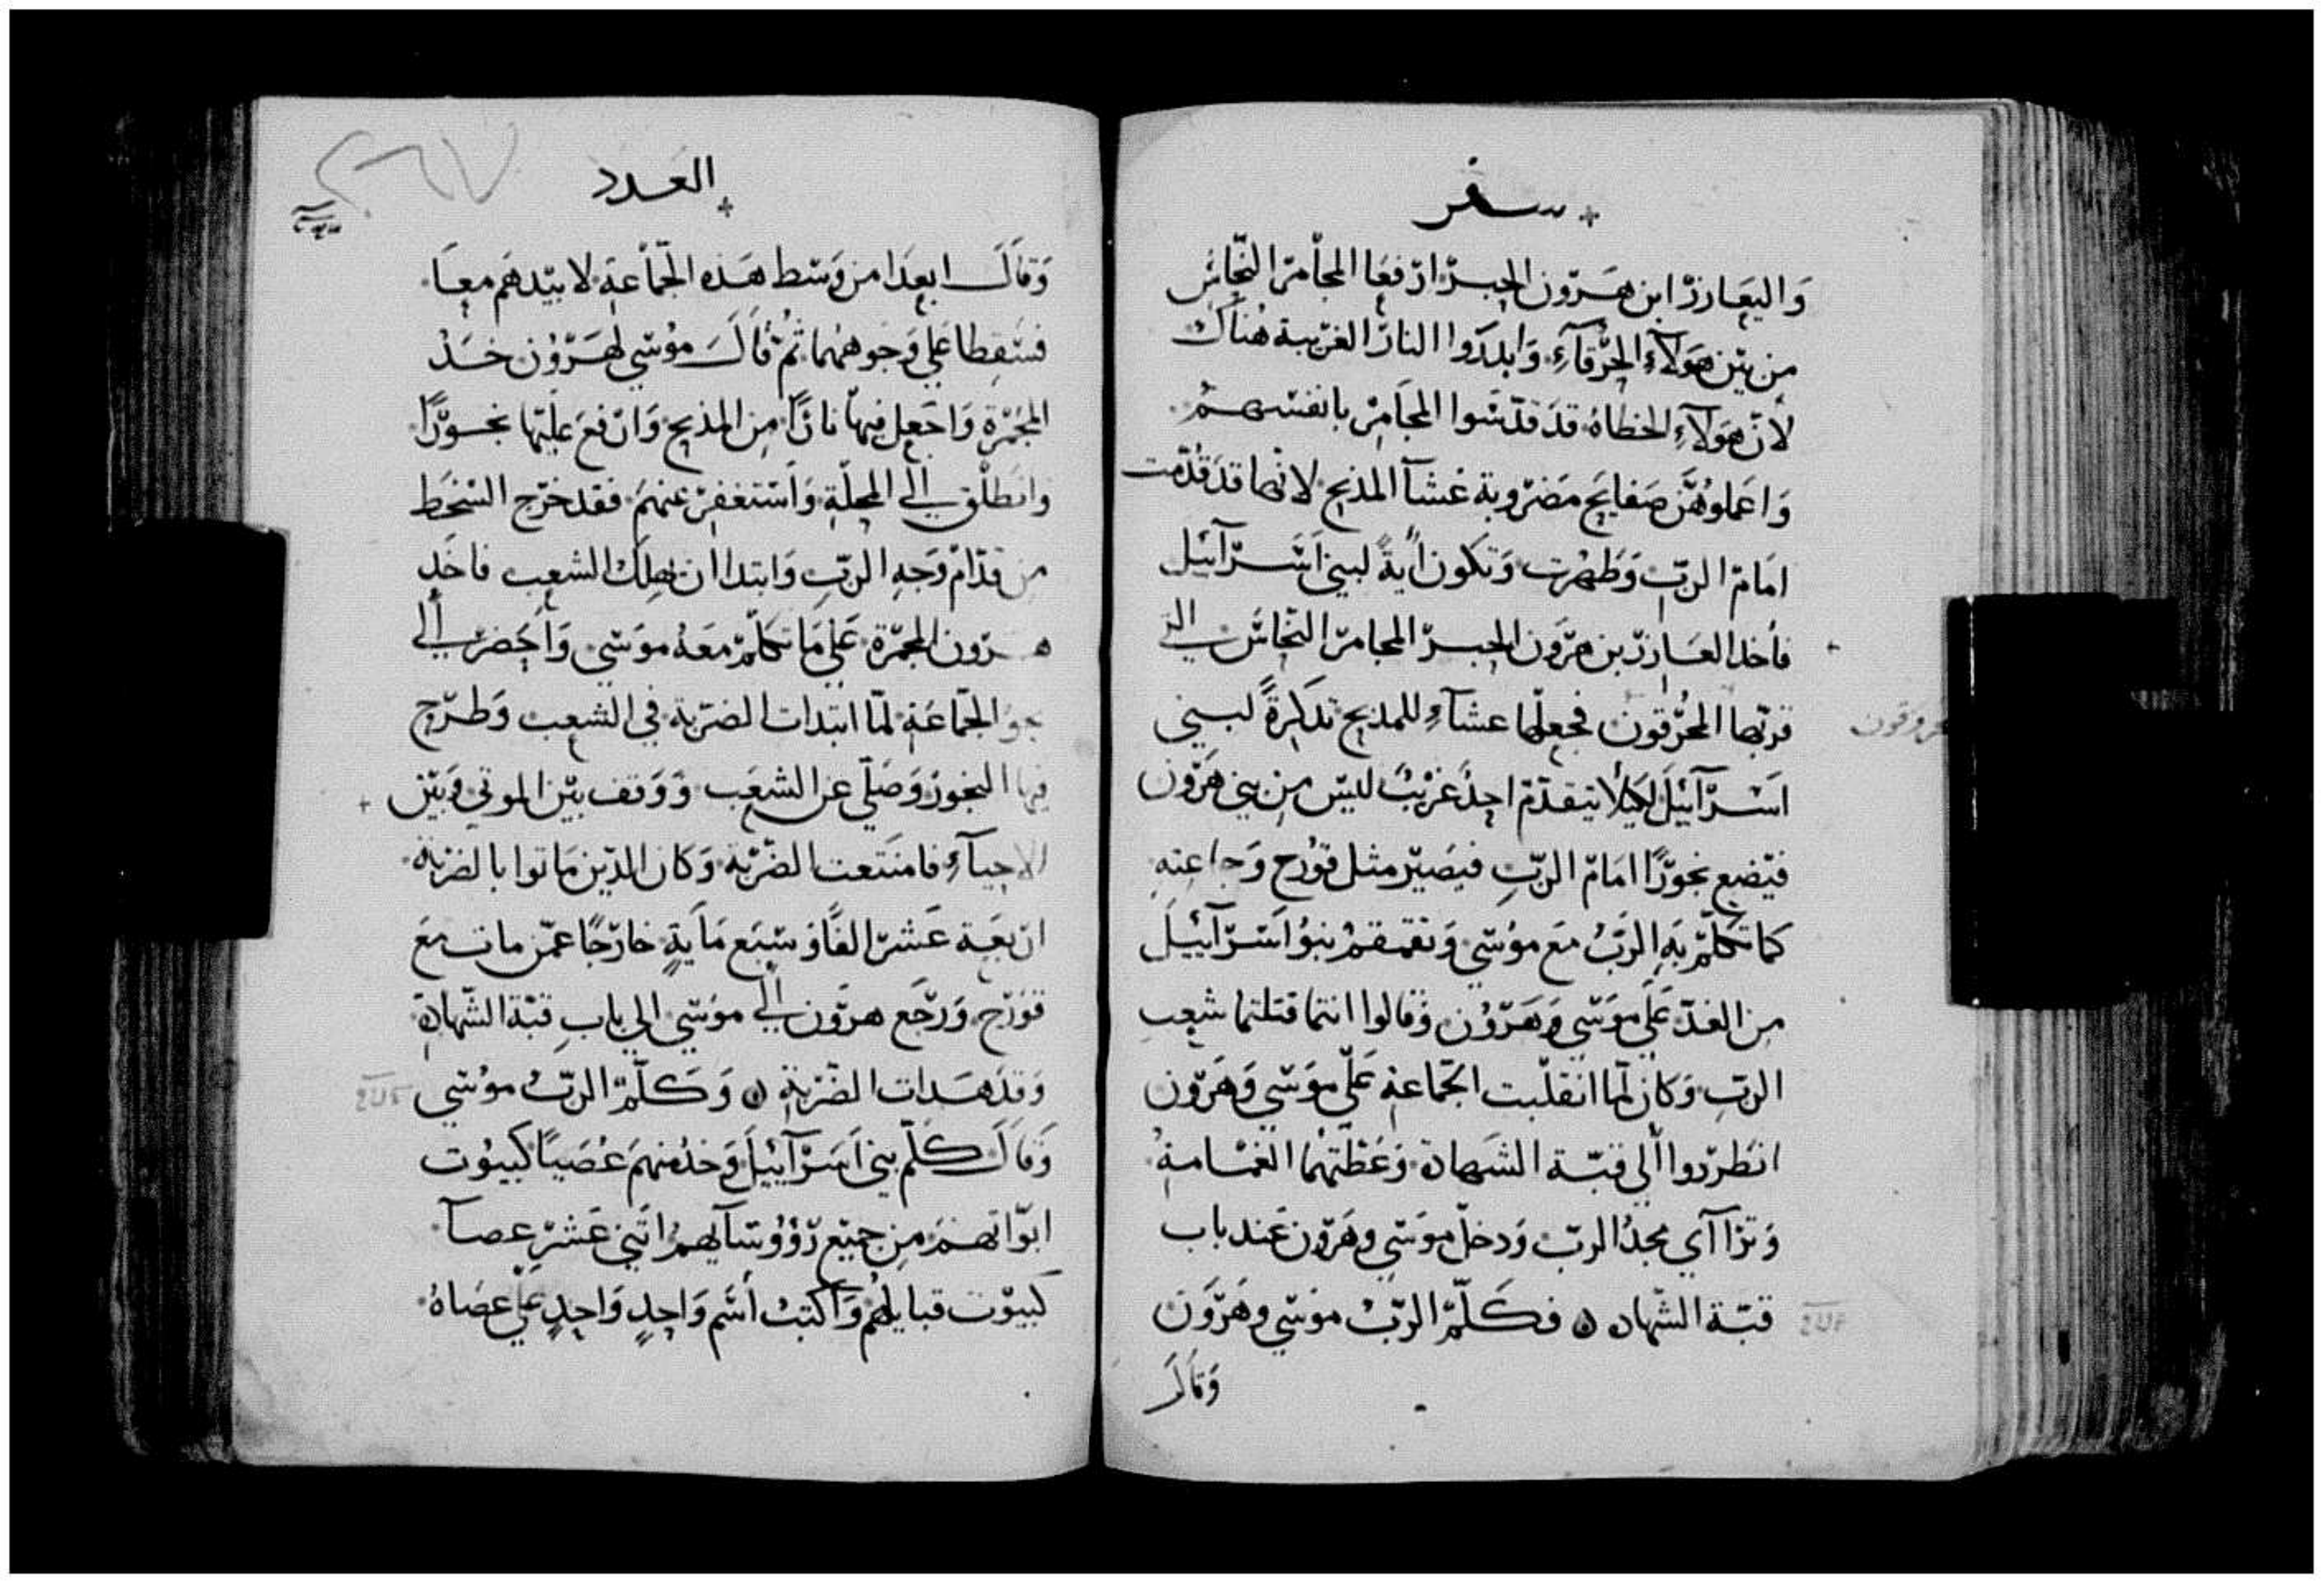 سفر
وَاليعَازرْ ابن هَرّون الحِبرْ ارفعَا المجاْمرْ النّحَاسْ
مِن بَيْن هَولآءِ الحُرّقآءِ وَابدرَوا النارْ الغرّيبة هُنَاكْ
لانّ هَولآءِ الخطاهْ قدَ قدّسَوا المجَامِرْ بانفسهمْ
وَاعمَلوهُنَّ صَفايَحِ مَضرّوبة غشآ المذبح لانها قدَ قُدّمت
امَامْ الربّ وَطهرْت وَتكون ايةً لبني اسَرْآئيل
فأخد العَازرْ بن هرّون الحبرْ المجامرْ النحاسْ التي
قربها المحُرّقونْ فجعلها عشآءِ للمذبح تدكرةً لبني
محروقون
اسَرْآئيْلَ لكيلا يتقدّمْ احِدٌ غرْيبٌ ليسْ مِن بني هَرّون
فيَضِع بخوْرًا امَامْ الربِّ فيصَيرْ مثل قوْرح وَجماعته
كما تكلّمْ بَهِ الرَبُ مَع موُسَي وَتقمقمْ بنوُ اسَرْآييلَ
مِن الغدّ عَلَي موَسَي وَهَرّوُن وَقالوا انتما قتلتما شعِب
الربّ وَكان لمّا انقلبّت الجّماعة عَلّي موَسَي وَهَرّون
انطَرْدوا الّي قبّة الشَهادة وَغَطّتهُما الغمْامةُ
وَترَاآي مجدُ الربّ وَدخلّ موَسَي وهَرّون عَند باب
قبّة الشّهاده فكَلّمْ الربُّ موسَي وهَرّوَن
وَقالَ
العدد
وَقالَ ابعِدَا من وَسَط هَذه الجّماْعة لابيّدهَم معًا
فسَقِطا عَلي وَجوههُما ثمْ قاَلَ موُسَي لهَرّوُن خَدْ
المجُمْرّة وَاجَعِل فيها نارًا مِن المذبح وَارْفعَ عليّها بخوْرًا
وانطَلْق الي المحِلّة وَاسَتغفِرْ عنهمَ فقد خرّج السَخَط
من قدّامْ وَجهِ الربِّ وَابتدا ان يهِلكْ الشعِب فاخَدِ
هرّون المجمرّة عَلي مَا تكلّمْ معَهُ موَسَي وَاحَضرْ الي
نجوُ الجّماعَة لمّا ابتدات الضرّبة في الشعِب وَطرّح
فيها البخورْ وَصَلّي عن الشعِب وَوَقف بيْن الموتي وَبيْن
الاحيآءِ فامنَتعت الضرّبة وَكان الدّين مَاتوا بالضرْبة
ارْبعَة عَشرْ الفًا وَسَبَع مَايةٍ خارْجًا عمّن مات مَع
قوَرْح وَرجَع هرّون الّي موَسَي الي باب قبّة الشّهادة
وَقدَ هَدات الضّرْبة وَكَلّمْ الربُّ موُسَي
وَقالَ كلّم بني اسَرْآييْلَ وَخدْ منهمَ عُصَيًا كبيوُت
ابوّاتهمَ مِن جميْع رؤوُسَآيهمْ اثَني عَشرْ عصآ
كبيوْت قبايلهُم وَاكتبْ اسَم وَاحِدٍ وَاحِدٍ عَلي عصَاهُ